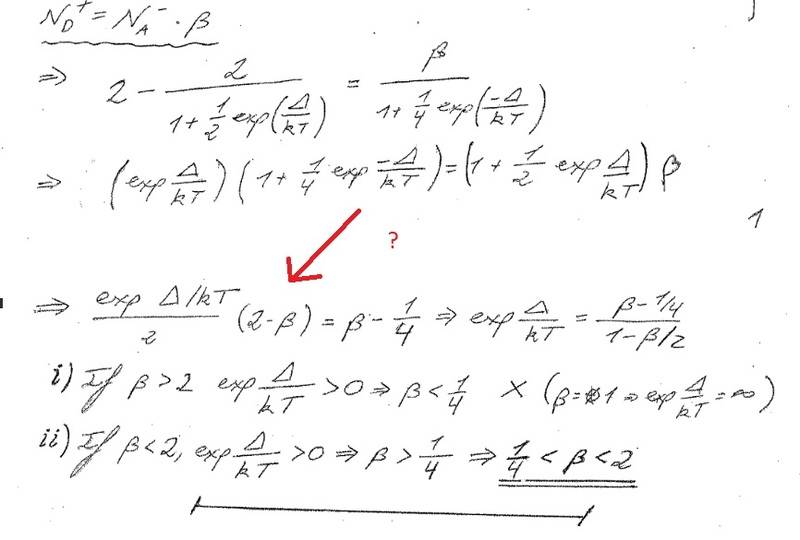 N_D^+ = N_A^- · β
⇒ 2 - 2/(1 + 1/2 exp(Δ/kT)) = β/(1 + 1/4 exp(-Δ/kT))
⇒ (exp Δ/kT)(1 + 1/4 exp -Δ/kT) = (1 + 1/2 exp Δ/kT) β
1
?
⇒ exp Δ/kT / 2 (2-β) = β - 1/4 ⇒ exp Δ/kT = (β - 1/4)/(1 - β/2)
i) If β > 2 exp Δ/kT > 0 ⇒ β < 1/4 X (β = 1 ⇒ exp Δ/kT = ∞)
ii) If β < 2, exp Δ/kT > 0 ⇒ β > 1/4 ⇒ 1/4 < β < 2